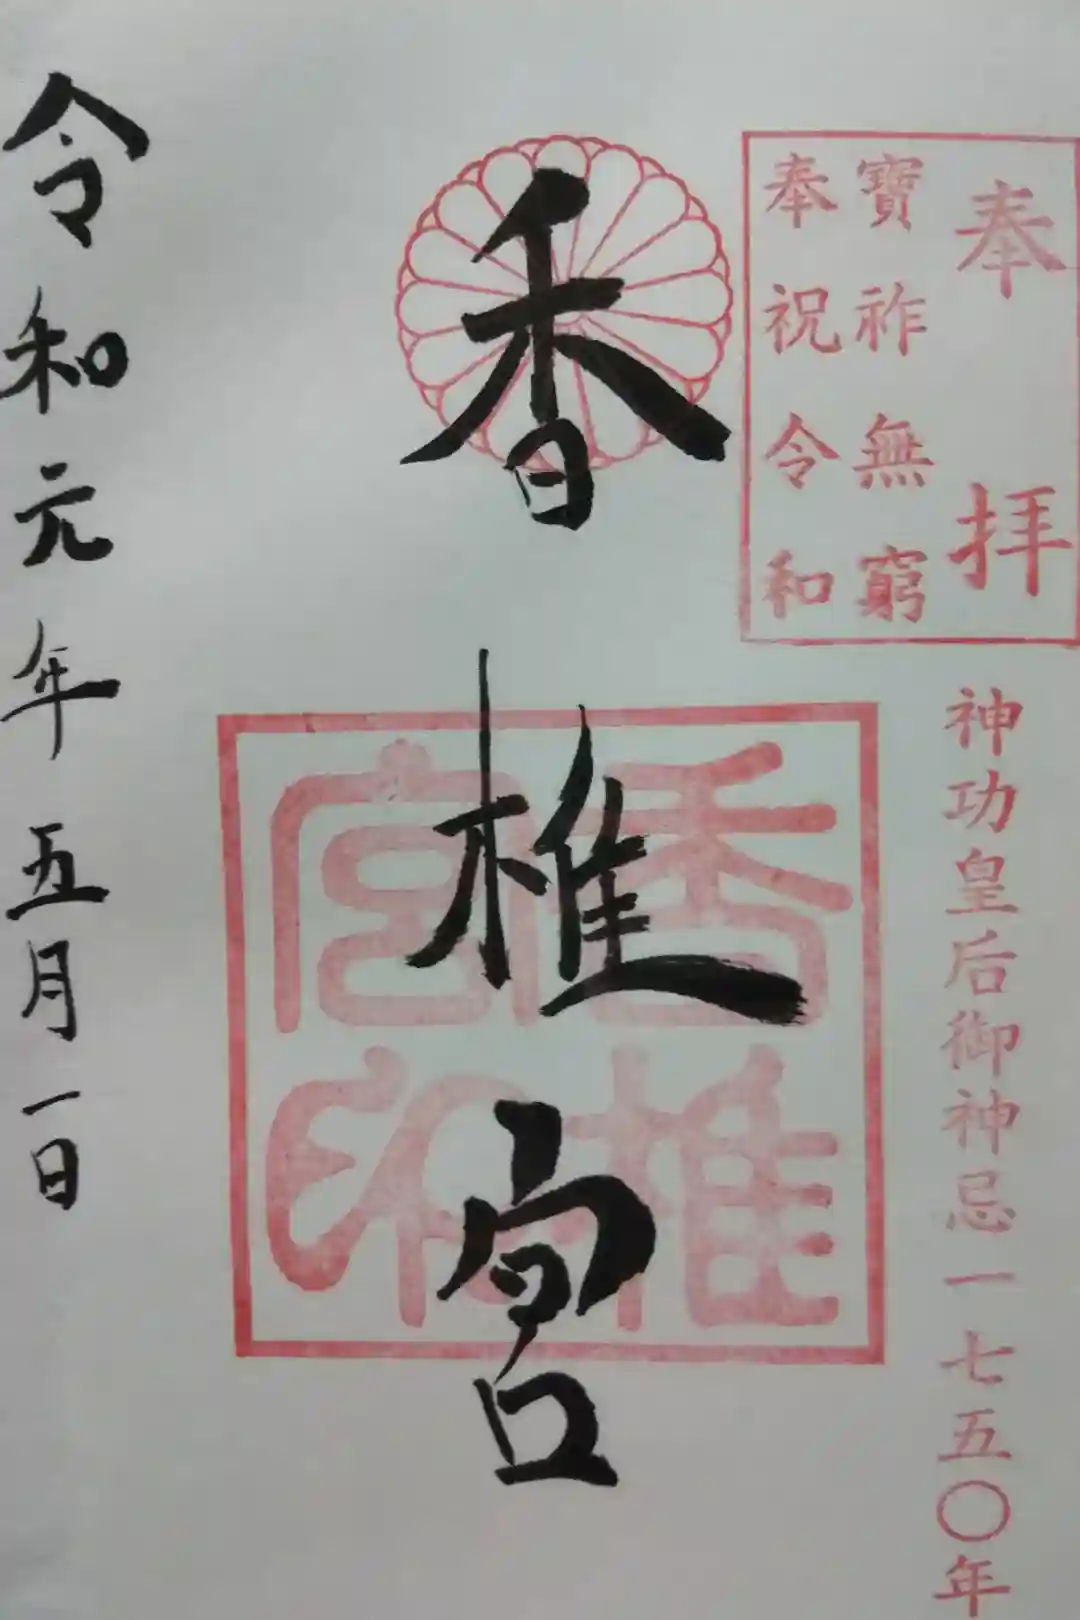 奉拝
寶祚無窮
奉祝令和
神功皇后御神忌一七五〇年
香椎宮
香椎
宮印
令和元年五月一日